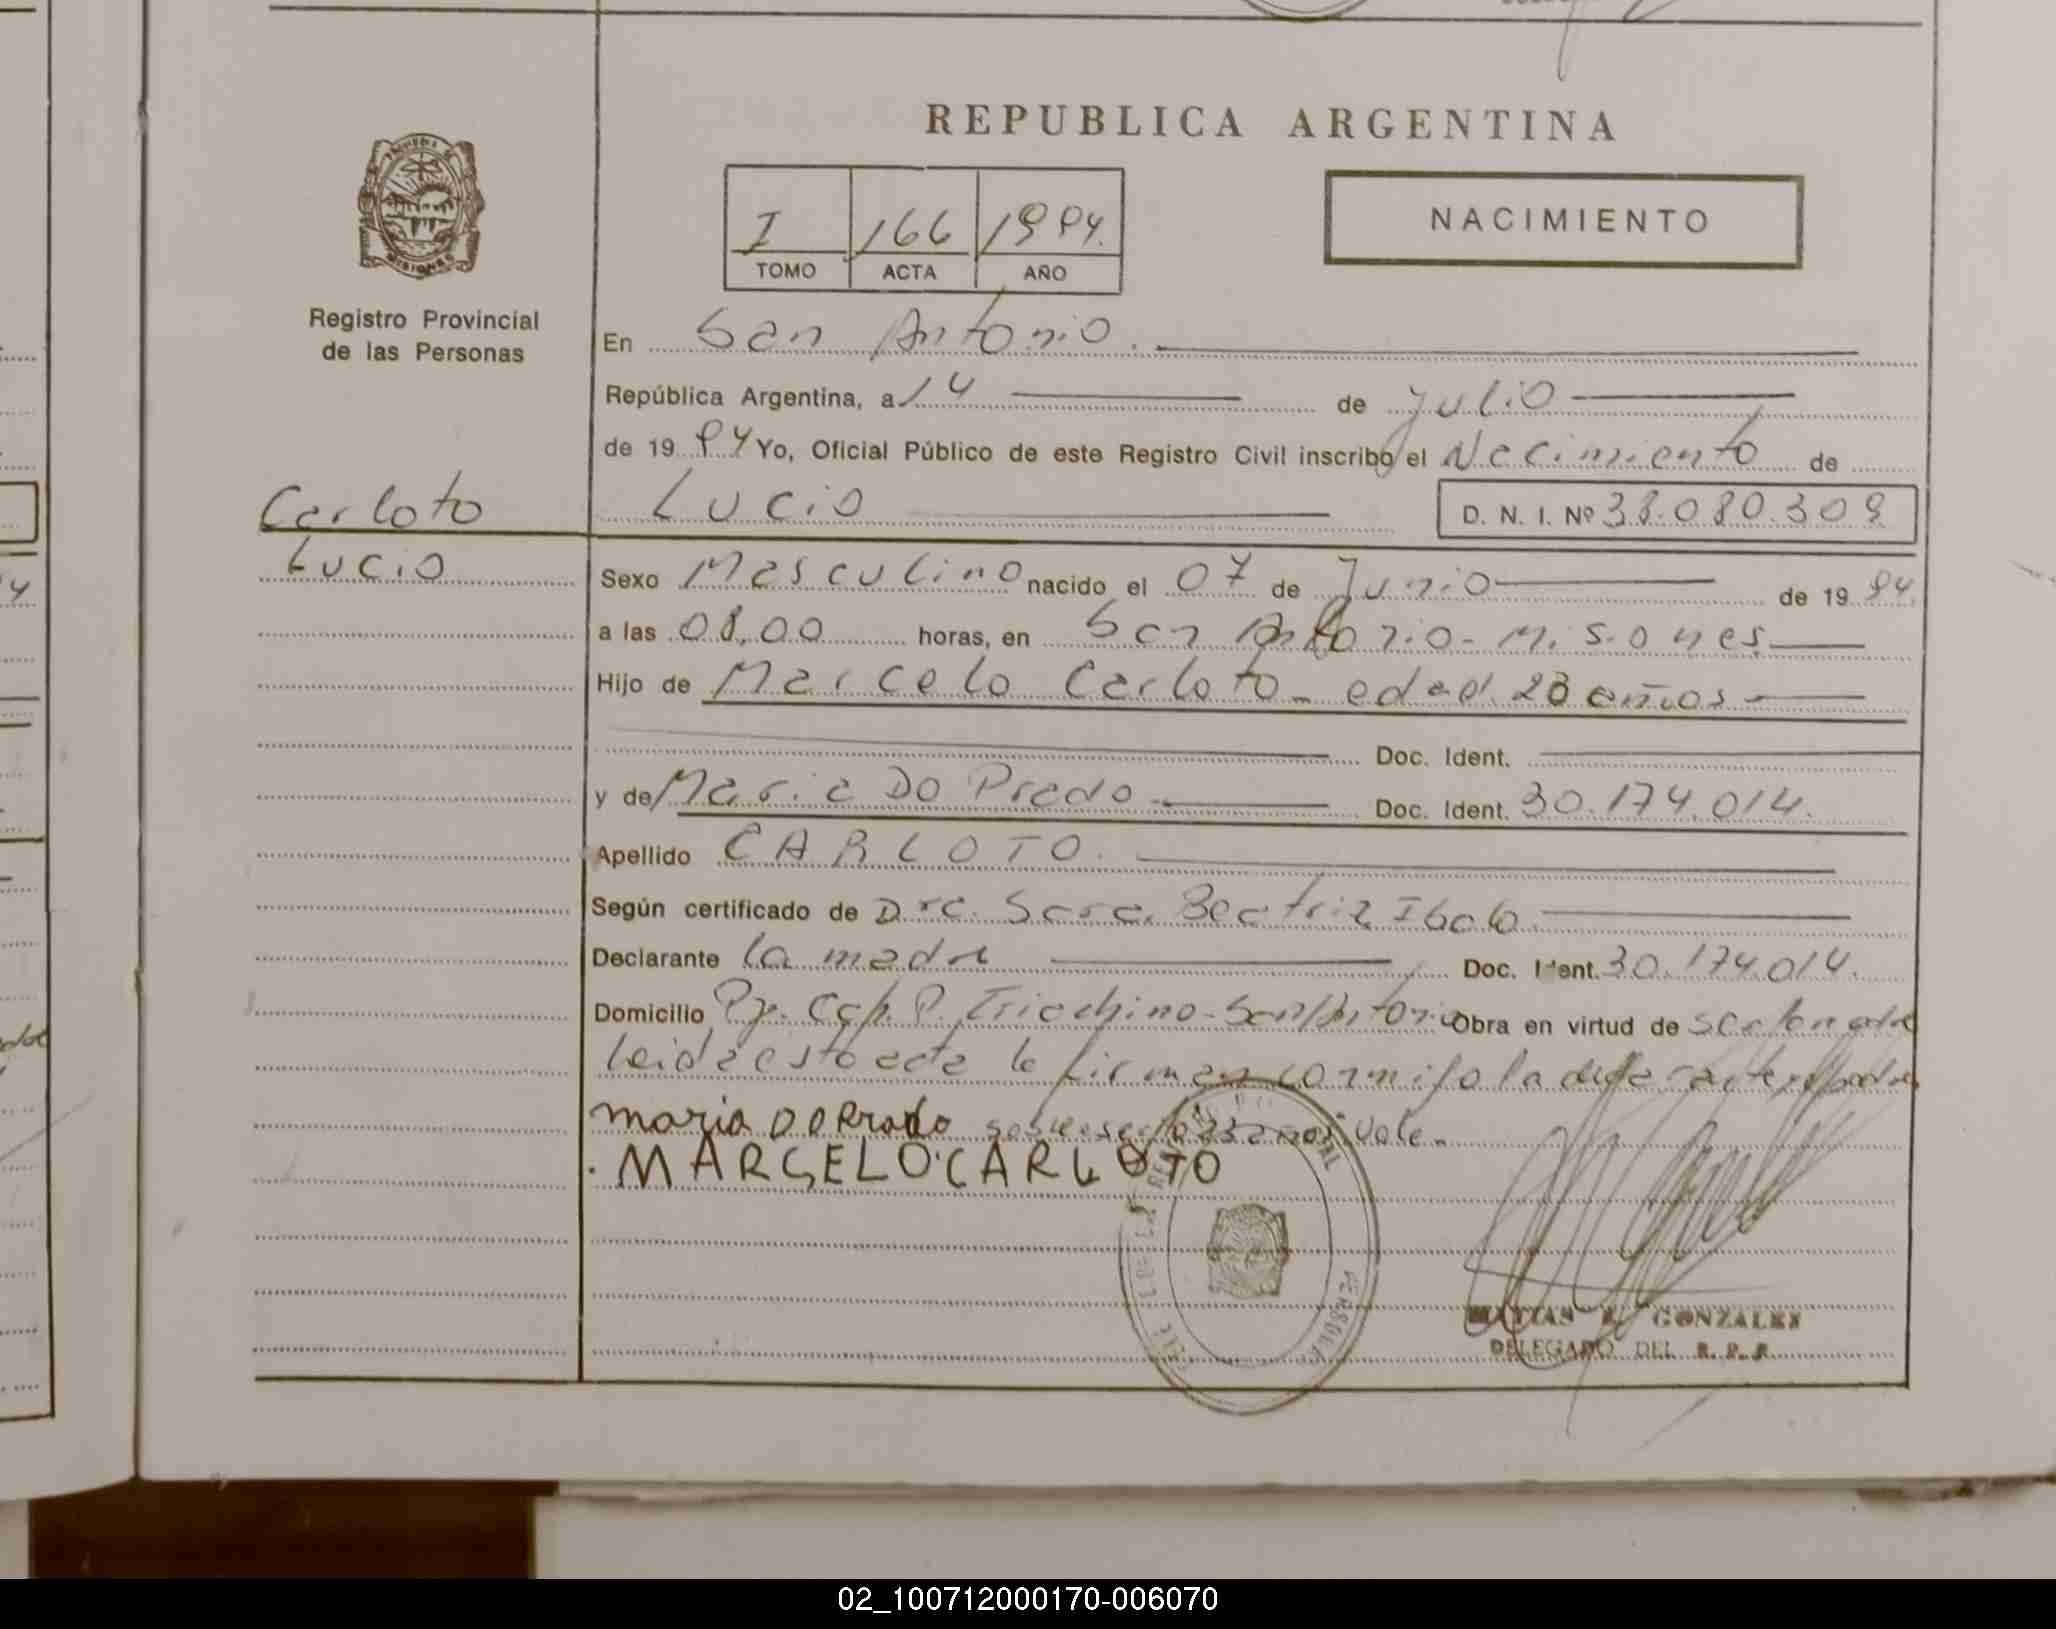 REPUBLICA ARGENTINA
PROVINCIA DE
MISIONES
I 166 1994.
TOMO ACTA AÑO
NACIMIENTO
Registro Provincial
de las Personas
En San Antonio.
República Argentina, a 14 de julio
de 1994 Yo, Oficial Público de este Registro Civil inscribo el Nacimiento de
Carloto
Lucio
Lucio D. N. I. Nº 38.080.309
Sexo Masculino nacido el 07 de Junio de 1994.
a las 08,00 horas, en San Antonio - Misiones
Hijo de Marcelo Carloto - edad 23 años -
Doc. Ident.
y de Maria Do Prado - Doc. Ident. 30.174.014.
Apellido CARLOTO.
Según certificado de Dra. Sara Beatriz Ibalo
Declarante la madre Doc. Ident. 30.174.014.
Domicilio Pje. Cap. P. Iriachino - San Antonio Obra en virtud de ser la madre
leida esta acta la firman conmigo la declarante y padre
maria DO Prado sobre 23 años: Vale.
. MARCELO CARLOTO
MATIAS R. GONZALEZ
DELEGADO DEL R. P. P.
02_100712000170-006070